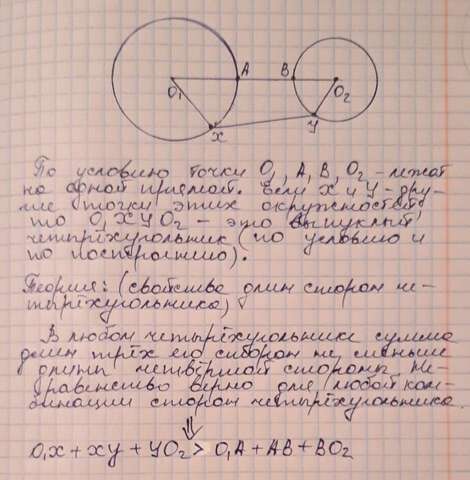 A B
O₁ O₂
X У
По условию точки O₁, A, B, O₂ - лежат
на одной прямой. Если X и У - дру-
гие точки этих окружностей,
то O₁XУO₂ - это выпуклый
четырёхугольник (по условию и
по построению).
Теория: (свойства длин сторон че-
тырёхугольника)
В любом четырёхугольнике сумма
длин трёх его сторон не меньше
длины четвёртой стороны. Не-
равенство верно для любой ком-
бинации сторон четырёхугольника.
⇓
O₁X + XУ + УO₂ > O₁A + AB + BO₂